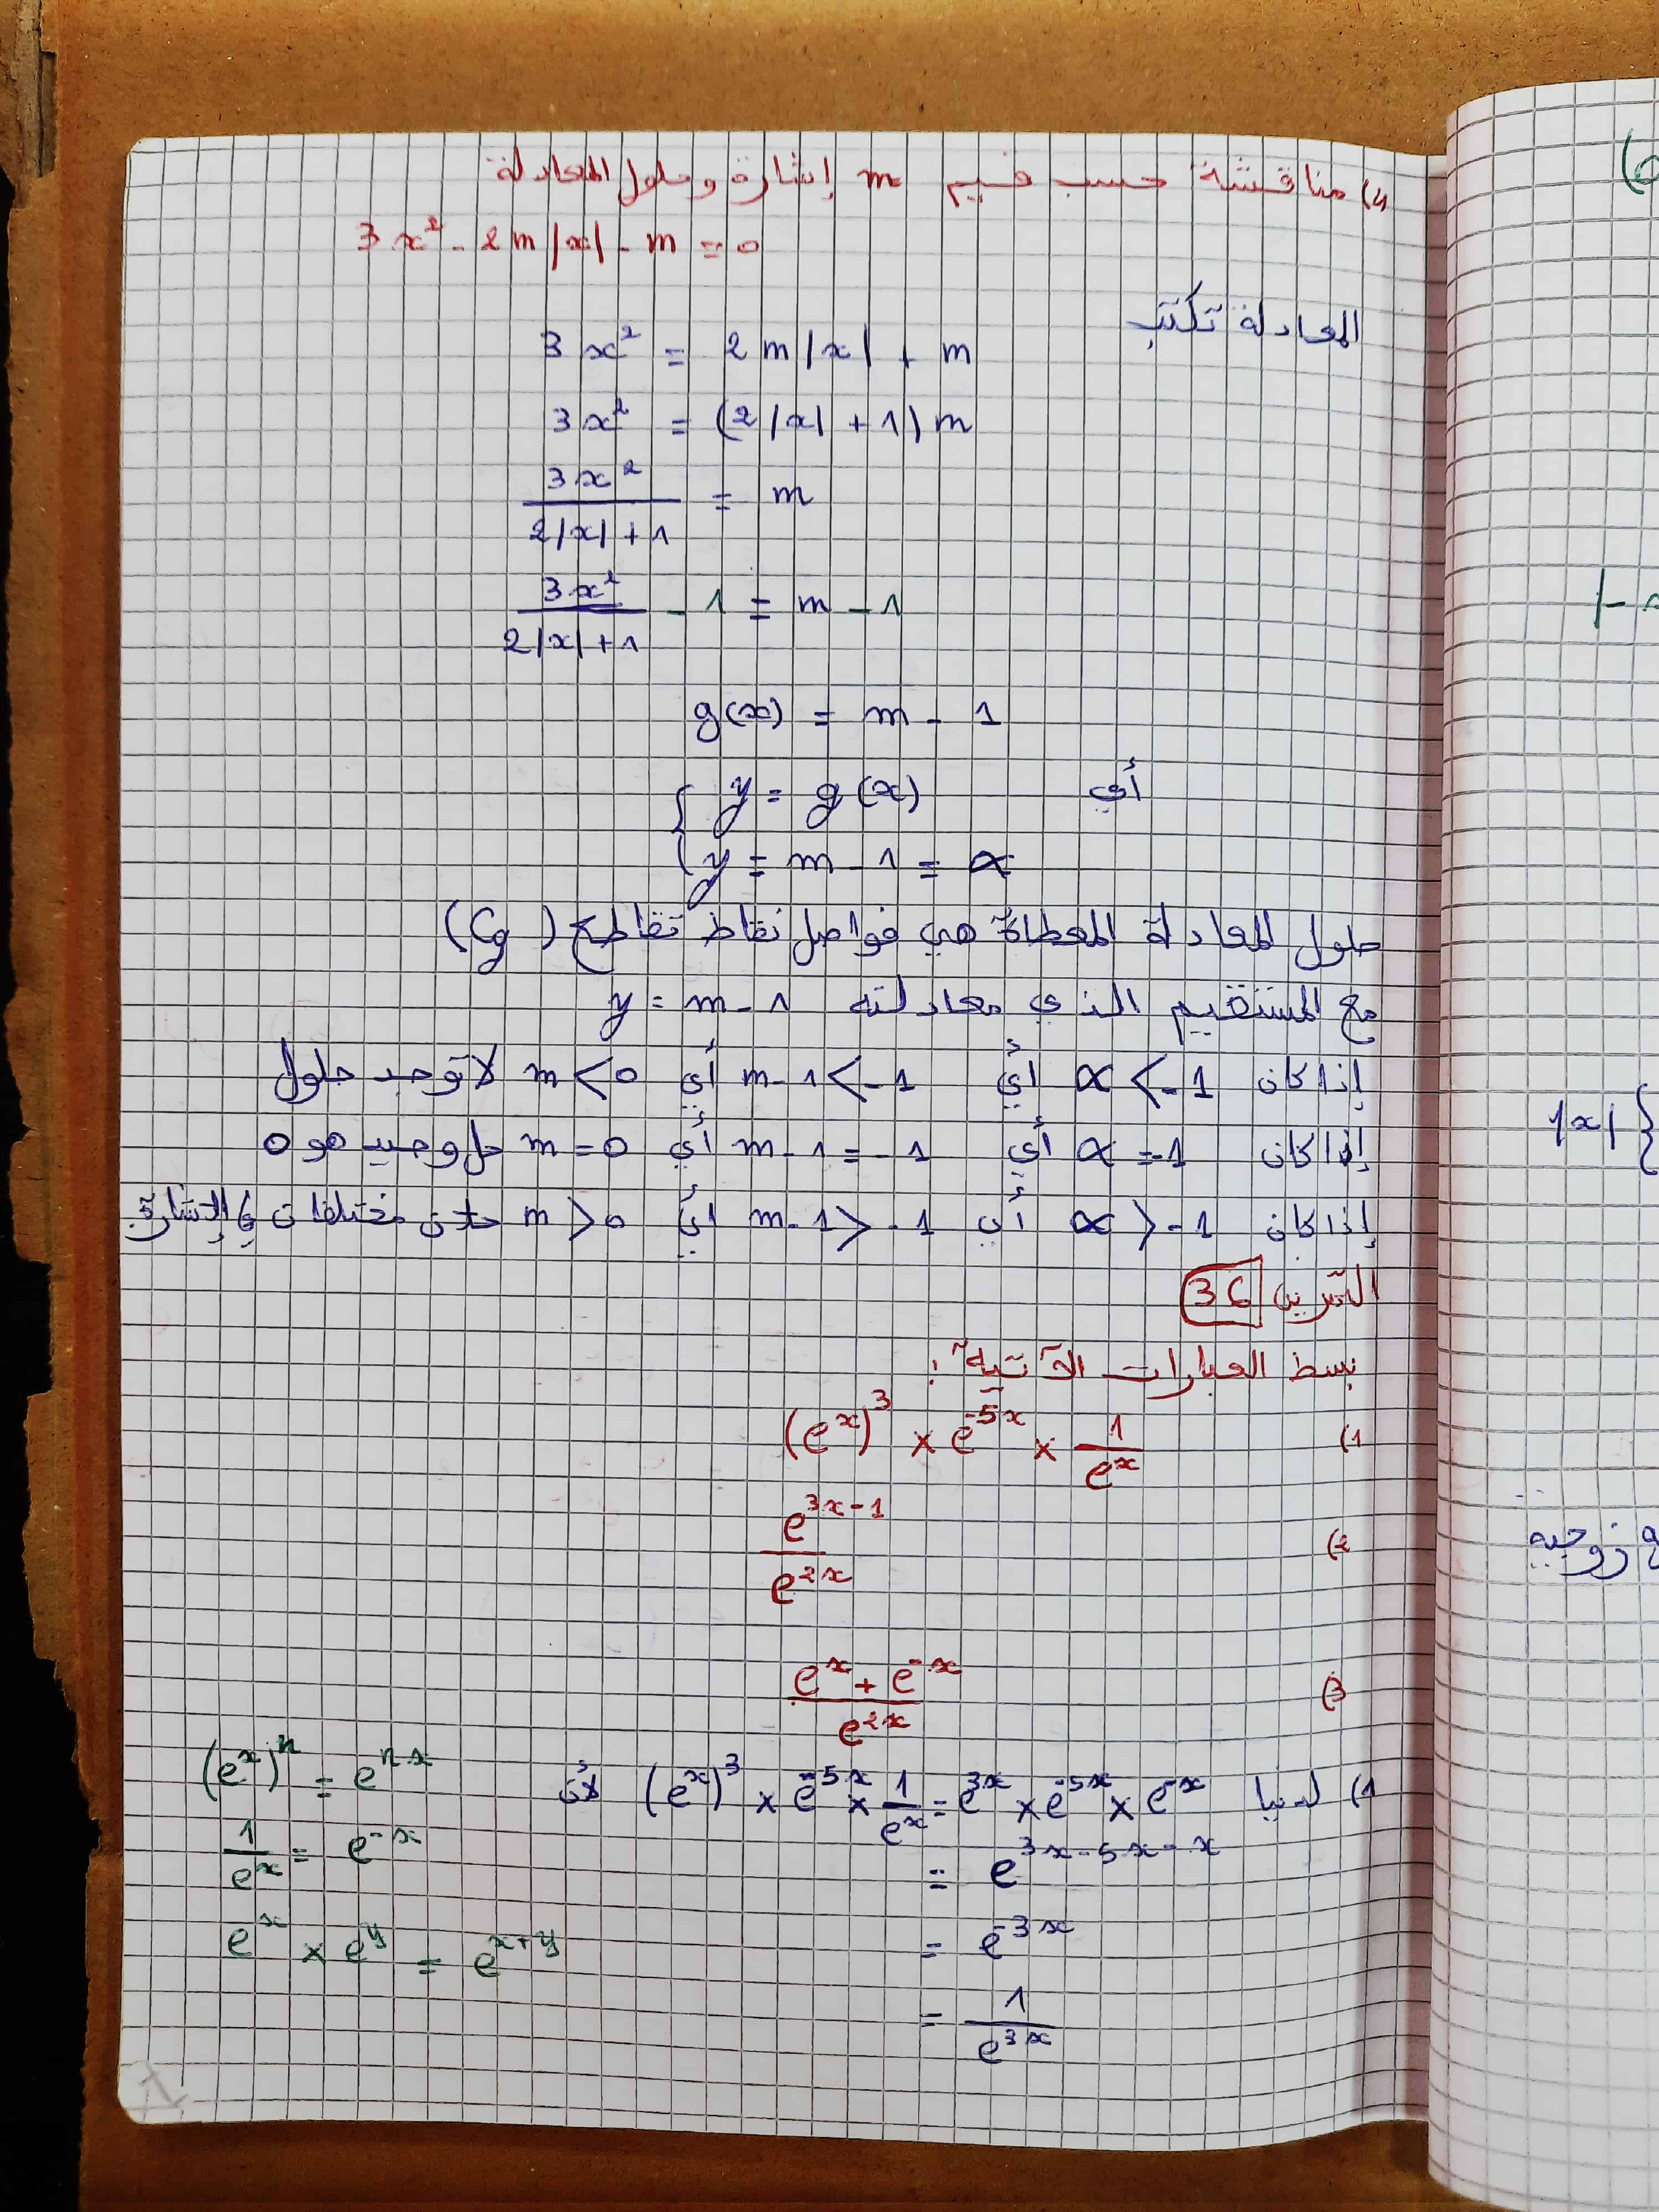 4) مناقشة حسب قيم m إشارة وحلول المعادلة
3x² - 2m|x| - m = 0
المعادلة تكتب
3x² = 2m|x| + m
3x² = (2|x| + 1) m
3x² / (2|x| + 1) = m
3x² / (2|x| + 1) - 1 = m - 1
g(x) = m - 1
أي { y = g(x)
y = m - 1 = α
حلول المعادلة المعطاة هي فواصل نقاط تقاطع (Cg)
مع المستقيم الذي معادلته y = m - 1
إذا كان α < -1 أي m - 1 < -1 أي m < 0 لا توجد حلول
إذا كان α = -1 أي m - 1 = -1 أي m = 0 حل وحيد هو 0
إذا كان α > -1 أي m - 1 > -1 أي m > 0 حلان مختلفان في الإشارة
التمرين 36
بسط العبارات الآتية :
1) (eˣ)³ × e⁻⁵ˣ × 1/eˣ
2) e³ˣ⁻¹ / e²ˣ
3) (eˣ + e⁻ˣ) / e²ˣ
1) لدينا (eˣ)³ × e⁻⁵ˣ × 1/eˣ = e³ˣ × e⁻⁵ˣ × e⁻ˣ لأن (eˣ)ⁿ = eⁿˣ
= e³ˣ⁻⁵ˣ⁻ˣ
1/eˣ = e⁻ˣ
= e⁻³ˣ
eˣ × eʸ = eˣ⁺ʸ
= 1/e³ˣ
|x| {
زوجية